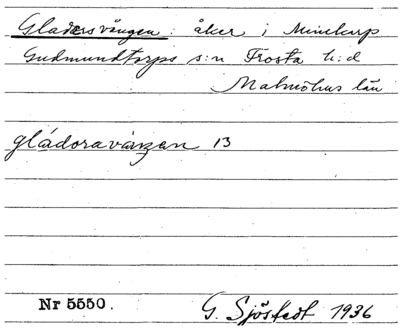 Gladersvången: åker i Munkarp
Gudmundtorps s:n Frosta h:d
Malmöhus län
gládoravánzen 13
Nr 5550.
G. Sjöstedt 1936